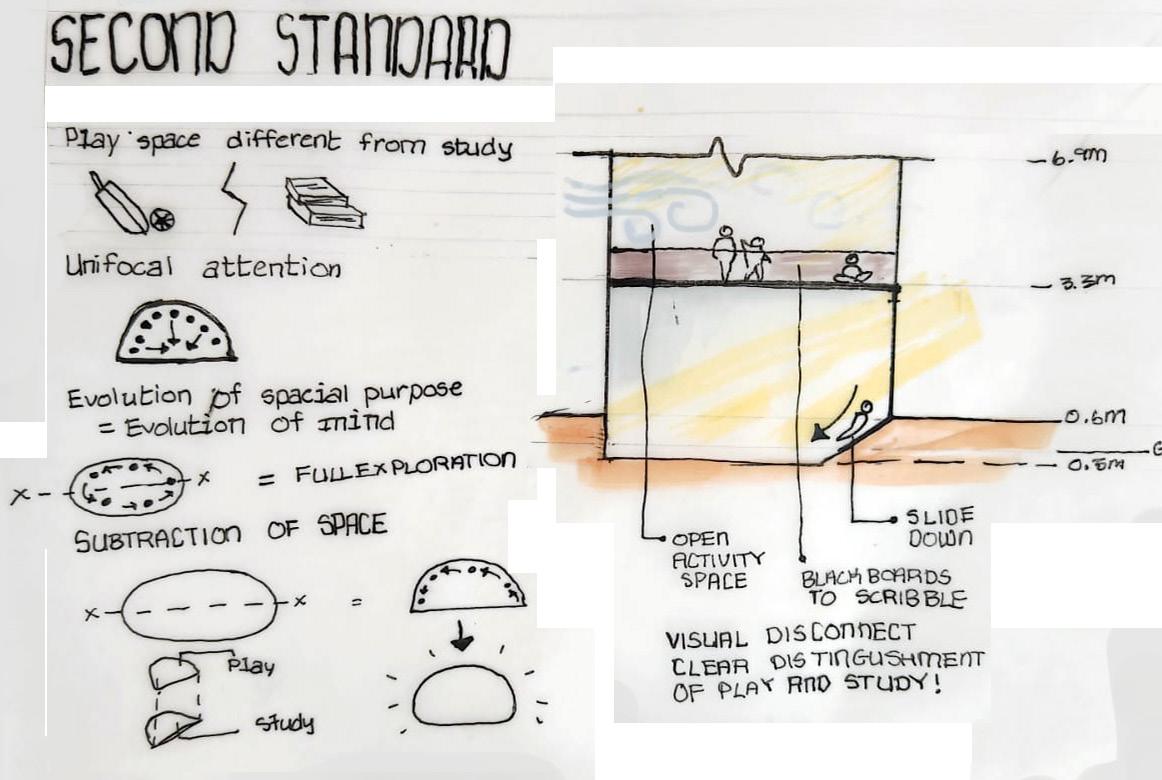 SECOND STANDARD
Play space different from study
Unifocal attention
Evolution of spacial purpose
= Evolution of mind
x - - x = FULL EXPLORATION
SUBTRACTION OF SPACE
x - - x =
Play
study
6.9m
3.3m
0.6m
G
0.5m
SLIDE
DOWN
OPEN
ACTIVITY
SPACE
BLACKBOARDS
TO SCRIBBLE
VISUAL DISCONNECT
CLEAR DISTINGUSHMENT
OF PLAY AND STUDY!